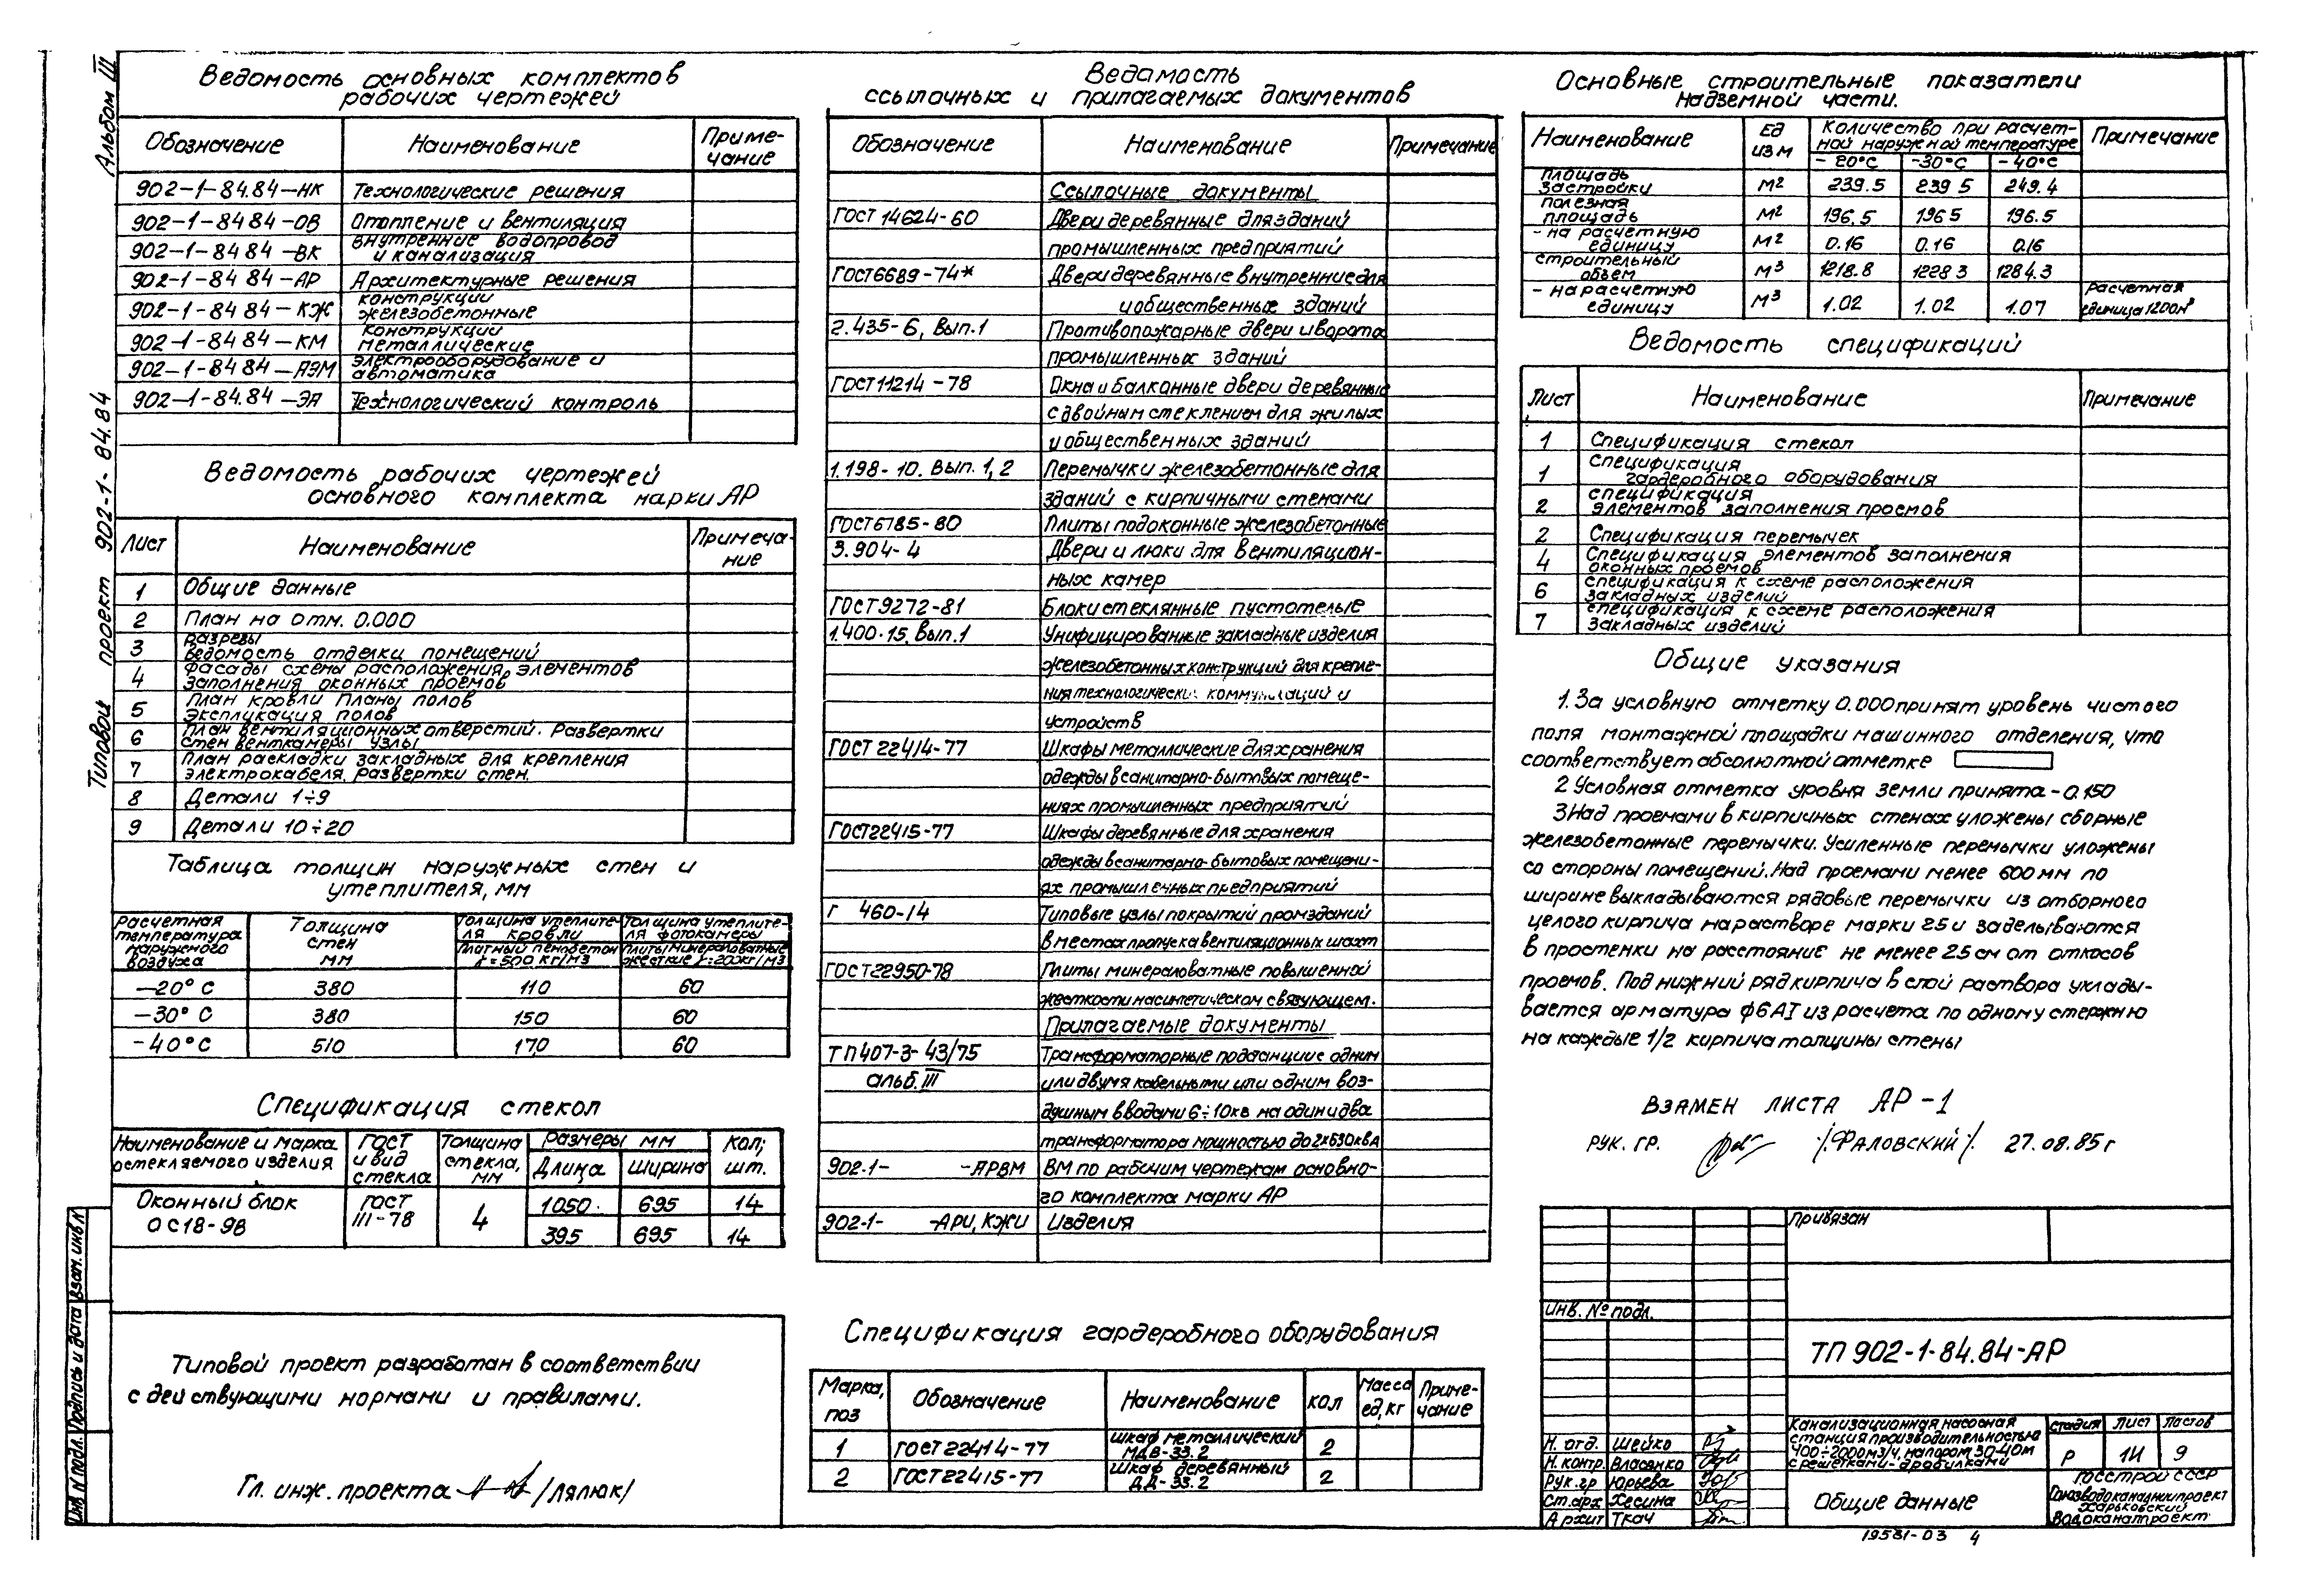 Альбом III
Типовой проект 902-1-84.84
Ведомость основных комплектов
рабочих чертежей
Обозначение Наименование Приме-
чание
902-1-84.84-НК Технологические решения
902-1-84 84-ОВ Отопление и вентиляция
902-1-84 84-ВК Внутренние водопровод
и канализация
902-1-84 84-АР Архитектурные решения
902-1-84 84-КЖ Конструкции
железобетонные
902-1-84 84-КМ Конструкции
металлические
902-1-84 84-АЭМ Электрооборудование и
автоматика
902-1-84.84-ЭА Технологический контроль
Ведомость рабочих чертежей
основного комплекта марки АР
Лист Наименование Примеча-
ние
1 Общие данные
2 План на отм. 0.000
3 Разрезы
Ведомость отделки помещений
4 Фасады схемы расположения элементов
заполнения оконных проемов
5 План кровли Планы полов
Экспликация полов
6 План вентиляционных отверстий. Развертки
стен венткамеры узлы
7 План раскладки закладных для крепления
электрокабеля. Развертки стен.
8 Детали 1÷9
9 Детали 10÷20
Таблица толщин наружных стен и
утеплителя, мм
Расчетная
температура
наружного
воздуха
Толщина
стен
мм
Толщина утеплите-
ля кровли
Плитный пенобетон
γ=500 кг/м3
Толщина утеплите-
ля фотокамеры
Плиты минераловатные
жесткие γ=200кг/м3
-20° С 380 110 60
-30° С 380 150 60
-40° С 510 170 60
Спецификация стекол
Наименование и марка
остекляемого изделия
ГОСТ
и вид
стекла
Толщина
стекла,
мм
Размеры мм
Длина Ширина
Кол,
шт.
Оконный блок
ОС18-9В
ГОСТ
111-78
4
1050 695 14
395 695 14
Типовой проект разработан в соответствии
с действующими нормами и правилами.
Гл. инж. проекта /Лялюк/
Инв N подл. Подпись и дата Взам. инв N
Ведомость
ссылочных и прилагаемых документов
Обозначение Наименование Примечание
Ссылочные документы
ГОСТ 14624-60 Двери деревянные для зданий
промышленных предприятий
ГОСТ6689-74* Двери деревянные внутренние для
и общественных зданий
2.435-6, Вып.1 Противопожарные двери и ворота
промышленных зданий
ГОСТ11214-78 Окна и балконные двери деревянные
с двойным стеклением для жилых
и общественных зданий
1.198-10. Вып. 1,2 Перемычки железобетонные для
зданий с кирпичными стенами
ГОСТ6785-80 Плиты подоконные железобетонные
3.904-4 Двери и люки для вентиляцион-
ных камер
ГОСТ9272-81 Блоки стеклянные пустотелые
1.400-15. Вып.1 Унифицированные закладные изделия
железобетонных конструкций для крепле-
ния технологических коммуникаций и
устройств
ГОСТ 22414-77 Шкафы металлические для хранения
одежды в санитарно-бытовых помеще-
ниях промышленных предприятий
ГОСТ22415-77 Шкафы деревянные для хранения
одежды в санитарно-бытовых помещени-
ях промышленных предприятий
Г 460-14 Типовые узлы покрытий промзданий
в местах пропуска вентиляционных шахт
ГОСТ22950-78 Плиты минераловатные повышенной
жесткости на синтетическом связующем.
Прилагаемые документы
ТП407-3-43/75 Трансформаторные подстанции с одним
альб. III или двумя кабельными или одним воз-
душным вводами 6÷10кв на один и два
трансформатора мощностью до 2х630кВА
902-1- -АРВМ ВМ по рабочим чертежам основно-
го комплекта марки АР
902-1- -АРИ, КЖИ Изделия
Спецификация гардеробного оборудования
Марка,
поз
Обозначение Наименование кол
Масса
ед, кг
Приме-
чание
1 ГОСТ22414-77 Шкаф металлический
МДВ-33.2 2
2 ГОСТ22415-77 Шкаф деревянный
ДД-33.2 2
Основные строительные показатели
надземной части.
Наименование Ед
изм
Количество при расчет-
ной наружной температуре
-20°С -30°С -40°С
Примечание
Площадь
застройки м2 239.5 239 5 249.4
Полезная
площадь м2 196.5 196 5 196.5
- на расчетную
единицу м2 0.16 0.16 0.16
Строительный
объем м3 1218.8 1228 3 1284.3
- на расчетную
единицу м3 1.02 1.02 1.07 Расчетная
единица 1200м³
Ведомость спецификаций
Лист Наименование Примечание
1 Спецификация стекол
1 Спецификация
гардеробного оборудования
2 Спецификация
элементов заполнения проемов
2 Спецификация перемычек
4 Спецификация элементов заполнения
оконных проемов
6 Спецификация к схеме расположения
закладных изделий
7 Спецификация к схеме расположения
закладных изделий
Общие указания
1. За условную отметку 0.000 принят уровень чистого
пола монтажной площадки машинного отделения, что
соответствует абсолютной отметке
2 Условная отметка уровня земли принята -0.150
3 Над проемами в кирпичных стенах уложены сборные
железобетонные перемычки. Усиленные перемычки уложены
со стороны помещений. Над проемами менее 600мм по
ширине выкладываются рядовые перемычки из отборного
целого кирпича на растворе марки 25 и заделываются
в простенки на расстояние не менее 25 см от откосов
проемов. Под нижний ряд кирпича в слой раствора уклады-
вается арматура ф6АI из расчета по одному стержню
на каждые 1/2 кирпича толщины стены
ВЗАМЕН ЛИСТА АР-1
РУК. ГР. /ФАЛОВСКИЙ/ 27.08.85г
Привязан
Инв. № подл.
ТП 902-1-84.84-АР
Н. отд. Шейко
Н. контр. Власенко
Рук. гр Юрьева
Ст. арх Хесина
Архит Ткач
Канализационная насосная
станция производительностью
400÷2000м3/ч, напором 30-40м
с решетками-дробилками
Стадия Лист Листов
Р 1И 9
Общие данные
Госстрой СССР
Союзводоканалниипроект
Харьковский
Водоканалпроект
19581-03 4